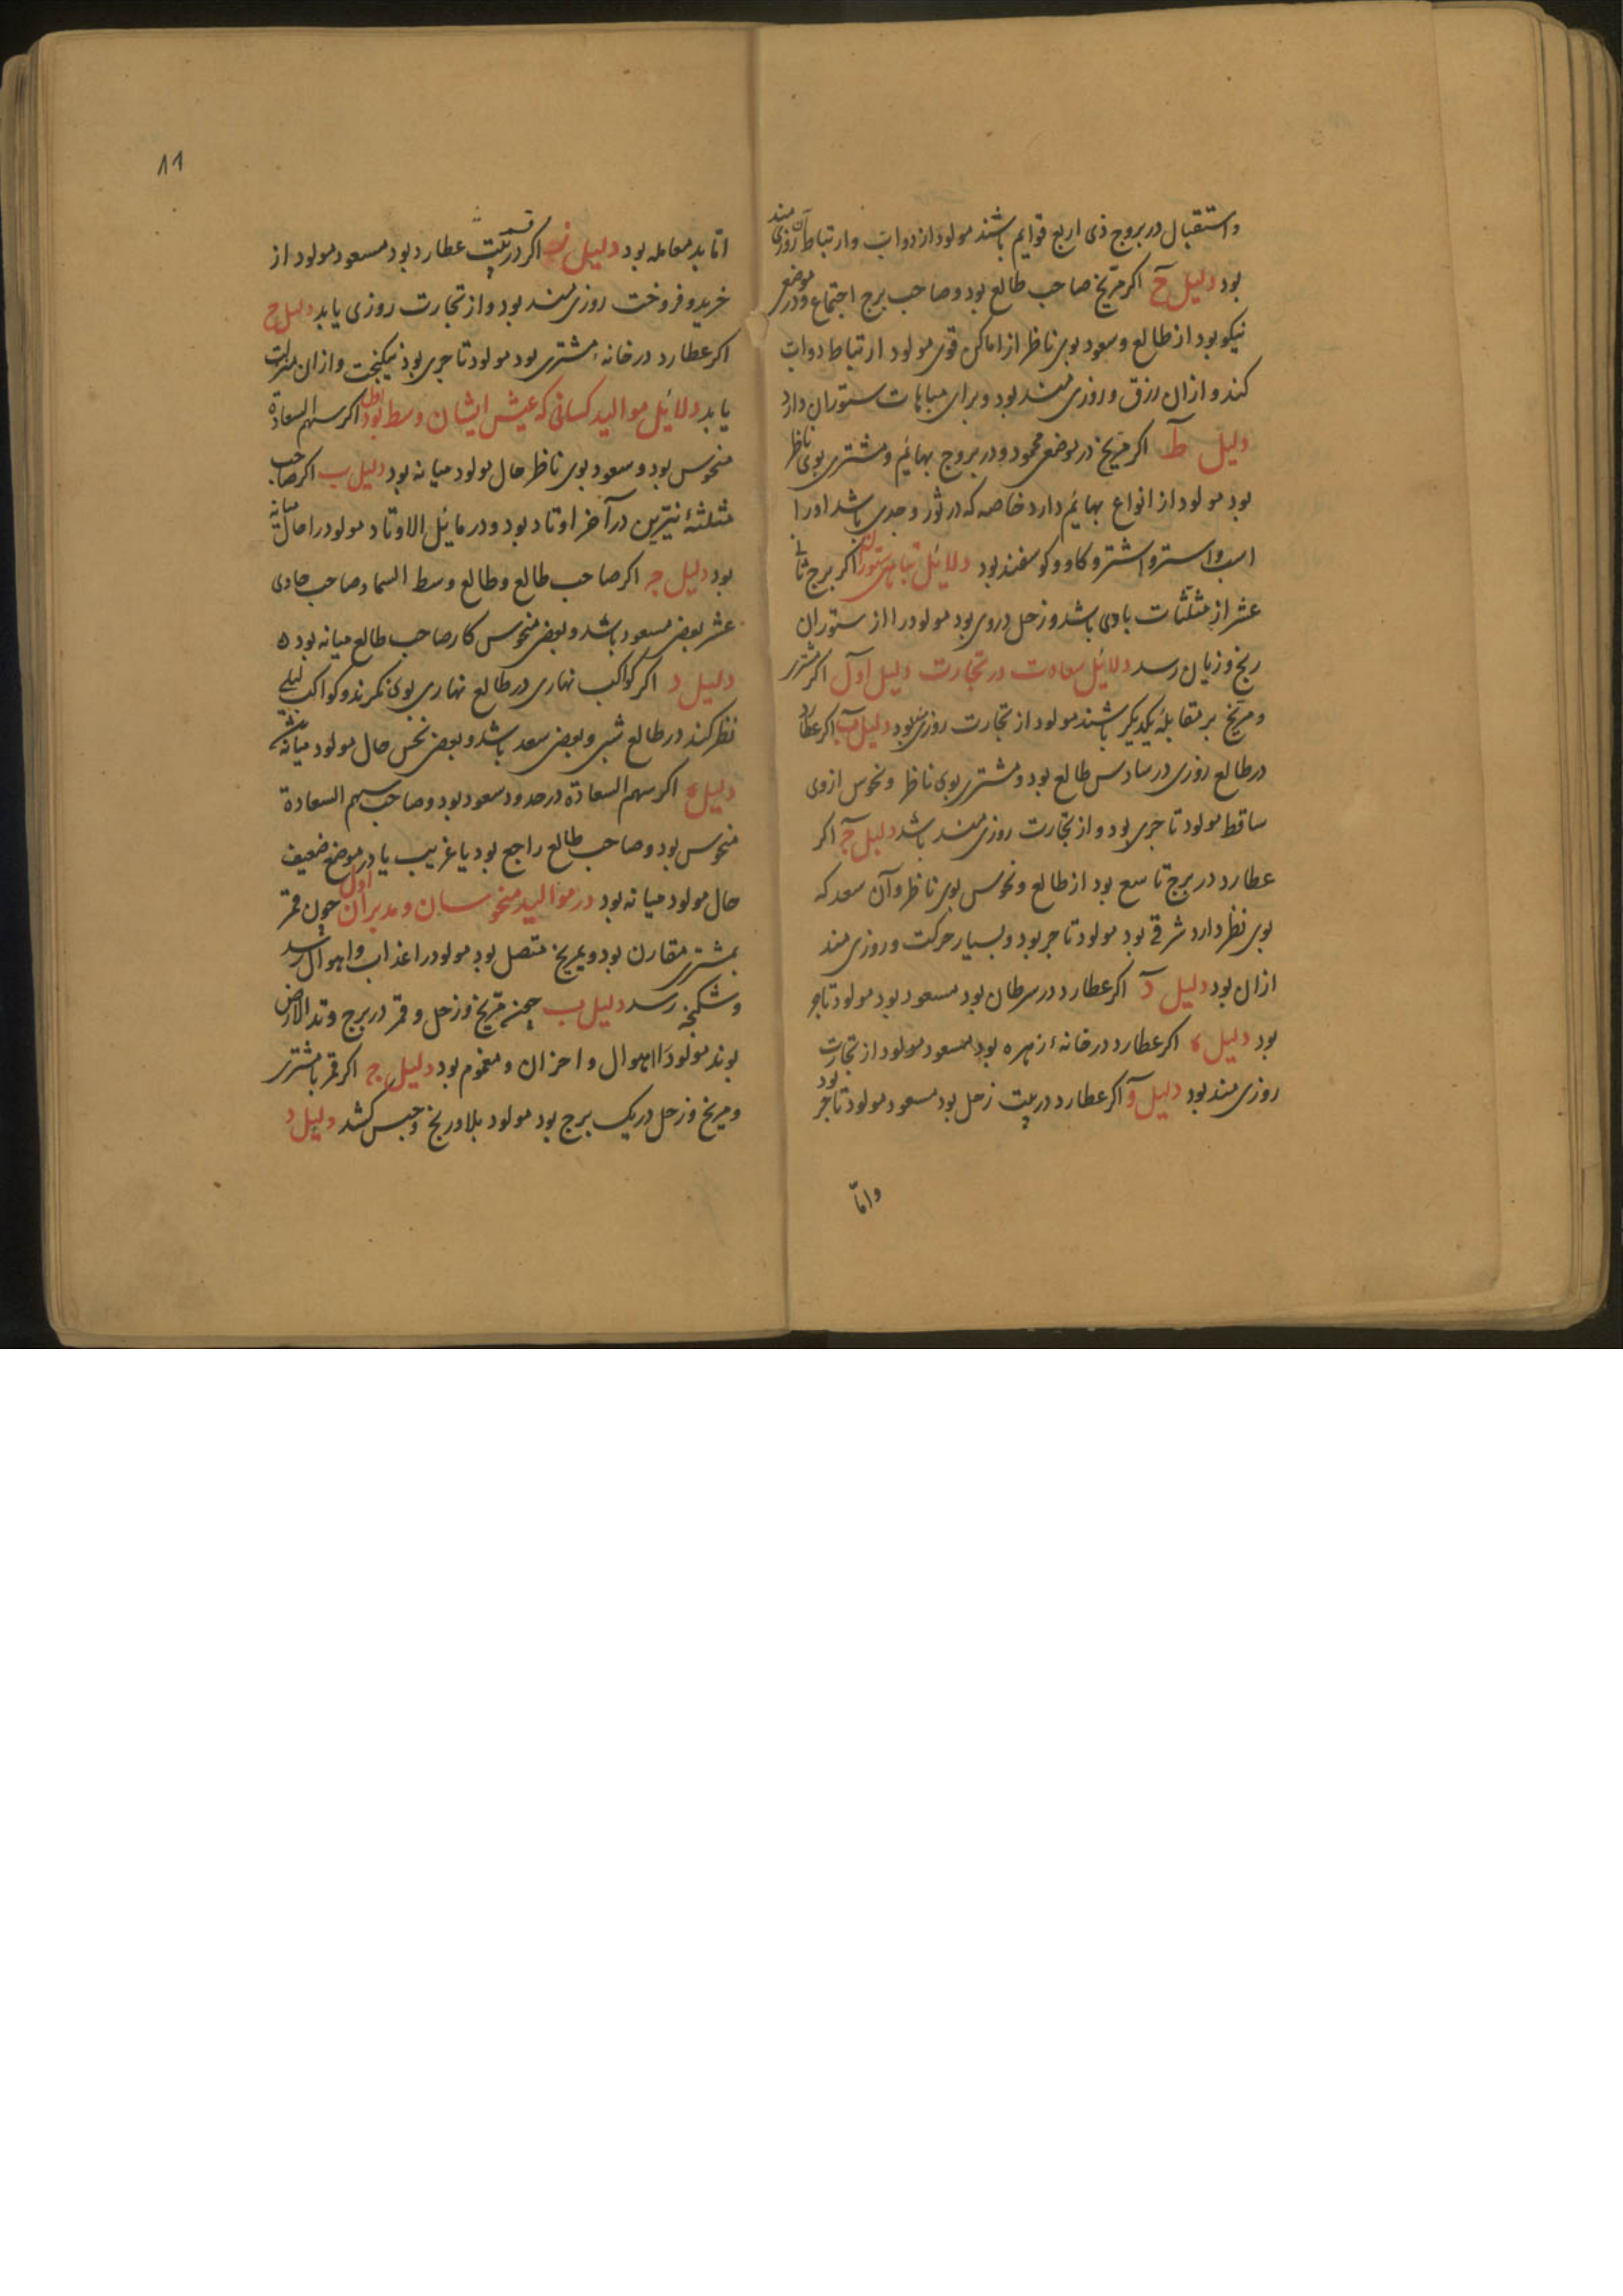 و استقبال در بروج ذی اربع قوایم باشند مولود از دواب و ارتباط آن روزی مند
بود دلیل ح اکر مریخ صاحب طالع بود و صاحب برج اجتماع و در موضعی
نیکو بود از طالع و سعود بوی ناظر از اماکن قوی مولود ارتباط دواب
کند و از ان رزق و روزی مند بود و برای مباهات ستوران دارد
دلیل ط اکر مریخ در موضعی محمود و در بروج بهائم و مشتری بوی ناظر
بود مولود از انواع بهائم دارد خاصه که در ثور و جدی باشد او را
اسب و استر و اشتر و کاو و کوسفند بود دلائل تباهی ستوران اکر برج ثانی
عشر از مثلثات بادی باشد و زحل در وی بود مولود را از ستوران
رنج و زیان رسد دلائل سعادت در تجارت دلیل اول اکر مشتری
و مریخ بر مقابله یکدیکر باشند مولود از تجارت روزی مند بود دلیل ب اکر عطارد
در طالع روزی در سادس طالع بود و مشتری بوی ناظر و نحوس از وی
ساقط مولود تاجری بود و از تجارت روزی مند باشد دلیل ج اکر
عطارد در برج تاسع بود از طالع و نحوس بوی ناظر و آن سعد که
بوی نظر دارد شرقی بود مولود تاجر بود و بسیار حرکت و روزی مند
ازان بود دلیل د اکر عطارد در سرطان بود مسعود بود مولود تاجر
بود دلیل ه اکر عطارد در خانهٔ زهره بود مسعود مولود از تجارت
روزی مند بود دلیل و اکر عطارد در بیت زحل بود مسعود مولود تاجر بود
و امّا
۸۹
اما بد معامله بود دلیل ز اکر در بیت قسمت عطارد بود مسعود مولود از
خرید و فروخت روزی مند بود و از تجارت روزی یابد دلیل ح
اکر عطارد در خانهٔ مشتری بود مولود تاجری بود نیکبخت و ازان
یابد دلائل موالید کسانی که عیش ایشان وسط بود اول اکر سهم السعادة
منحوس بود و سعود بوی ناظر حال مولود میانه بود دلیل ب اکر صاحب
مثلثهٔ نیّرین در آخر اوتاد بود و در مائل الاوتاد مولود را حال میانه
بود دلیل جه اکر صاحب طالع و طالع وسط السما و صاحب حادی
عشر بعضی مسعود باشد و بعضی منحوس کار صاحب طالع میانه بود ه
دلیل د اکر کواکب نهاری در طالع نهاری بوی نکرند و کواکب لیلی
نظر کنند در طالع شبی و بعضی سعد باشد و بعضی نحس حال مولود میانه باشد
دلیل ه اکر سهم السعادة در حدود سعود بود و صاحب سهم السعادة
منحوس بود و صاحب طالع راجع بود یا غریب یا در موضع ضعیف
حال مولود میانه بود در موالید منحوسان و مدبران اول چون قمر
بمشتری مقارن بود و بمریخ متصل بود مولود را عذاب و اهوال رسد
و شکنجه رسد دلیل ب چون مریخ و زحل و قمر در برج وتد الارض
بوند مولود را اهوال و احزان و مغموم بود دلیل ج اکر قمر با مشتری
و مریخ و زحل در یک برج بود مولود بلا و رنج و حبس کشد دلیل د